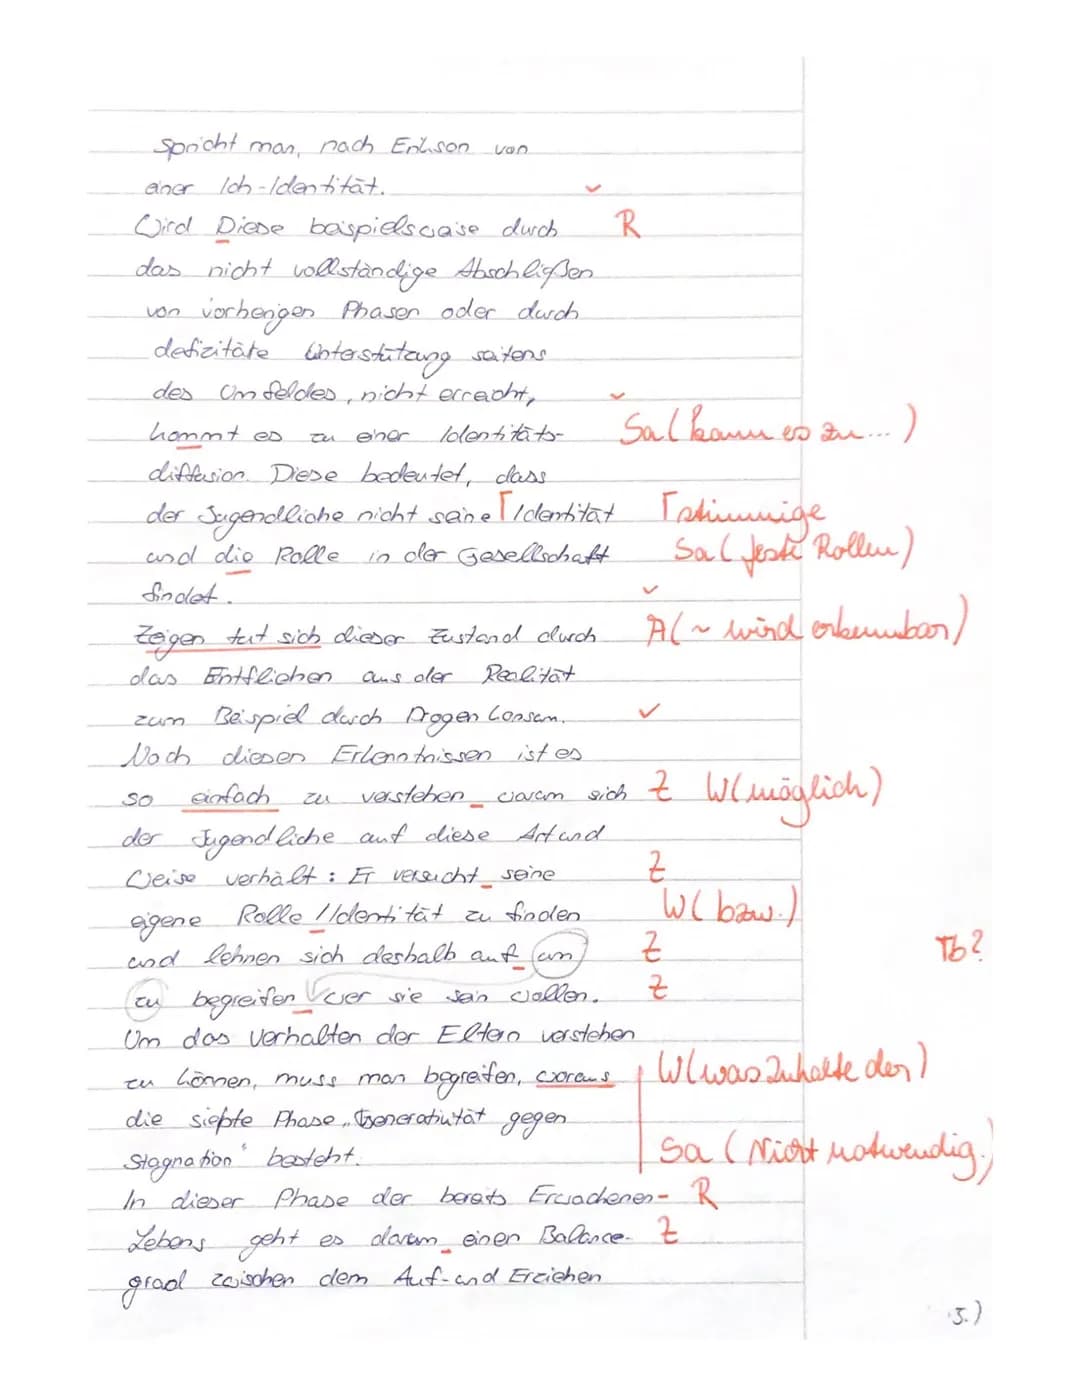 spricht man, nach Erikson von
einer Ich-Identität. ✓
Wird Diese beispielsweise durch R
das nicht vollständige Abschlißen
von vorherigen Phasen oder durch
defizitäte Unterstützung seitens
des Umfeldes, nicht erreicht, ✓
kommt es zu einer Identitäts- Sa (kann es zu...)
diffusion. Diese bedeutet, dass
der Jugendliche nicht seine Γ Identität Γ stimmige
und die Rolle in der Gesellschaft Sa (feste Rollen)
findet. ✓
Zeigen tut sich dieser Zustand durch A (~ wird erkennbar)
das Entfliehen aus der Realität
zum Beispiel durch Drogenkonsum. ✓
Nach diesen Erkenntnissen ist es
so einfach zu verstehen_ warum sich Z W (möglich)
der Jugendliche auf diese Art und
Weise verhält: Er versucht_ seine Z
eigene Rolle / Identität zu finden W (bzw.)
und lehnen sich deshalb auf_ um Z Tb?
zu begreifen_ wer sie sein wollen. Z
Um das Verhalten der Eltern verstehen
zu können, muss man begreifen, woraus W (was Inhalte der)
die siebte Phase „Generativität gegen
Stagnation“ besteht. Sa (Nicht notwendig.)
In dieser Phase der bereits Erwachenen- R
Lebens geht es darum_ einen Balance- Z
grad zwischen dem Auf- und Erziehen
5.)